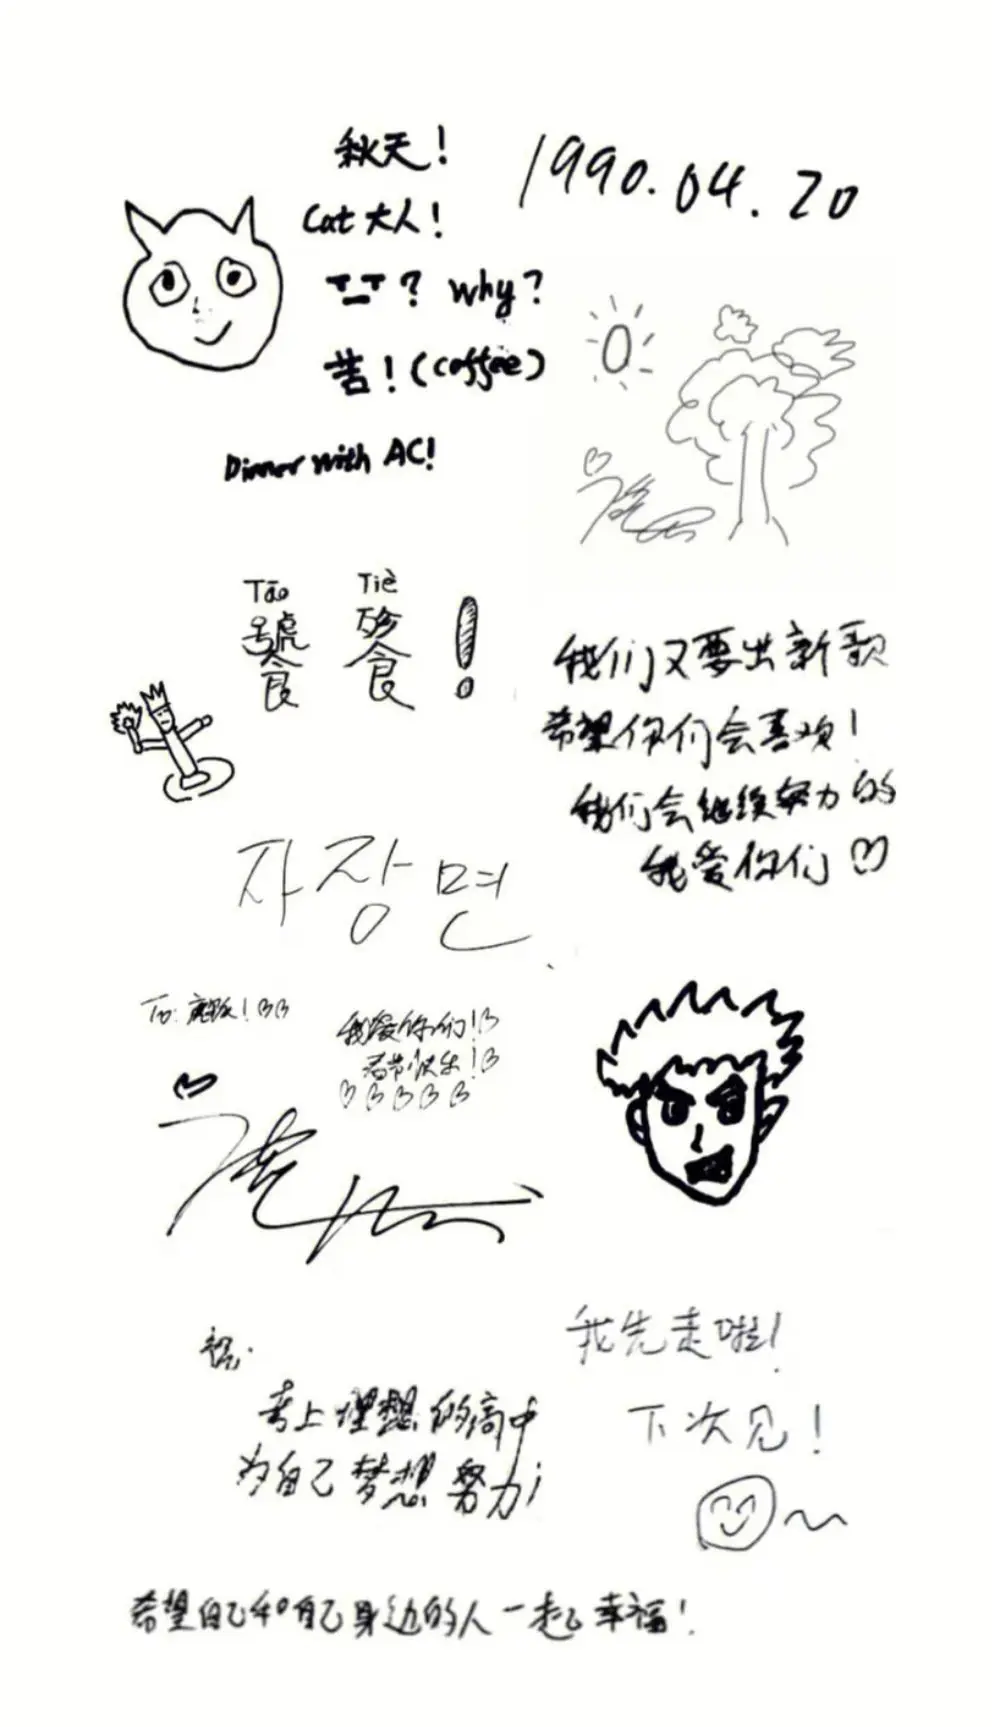 秋天！
1990.04.20
Cat 大人！
T_T？ why？
苦！(coffee)
Dinner with AC!
Tāo Tiè
饕餮！
我们又要出新歌
希望你们会喜欢！
我们会继续努力的
我爱你们♡
자장면
To: ！♡♡
我爱你们！♡
春节快乐！♡
♡♡♡♡♡
我先走啦！
下次见！
祝:
考上理想的高中
为自己梦想努力！
希望自己和自己身边的人一起幸福！